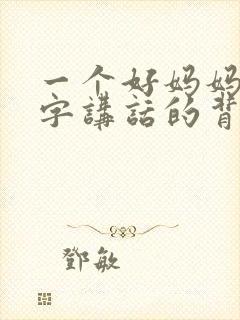 一个好妈妈
字講話的背
鄧敏